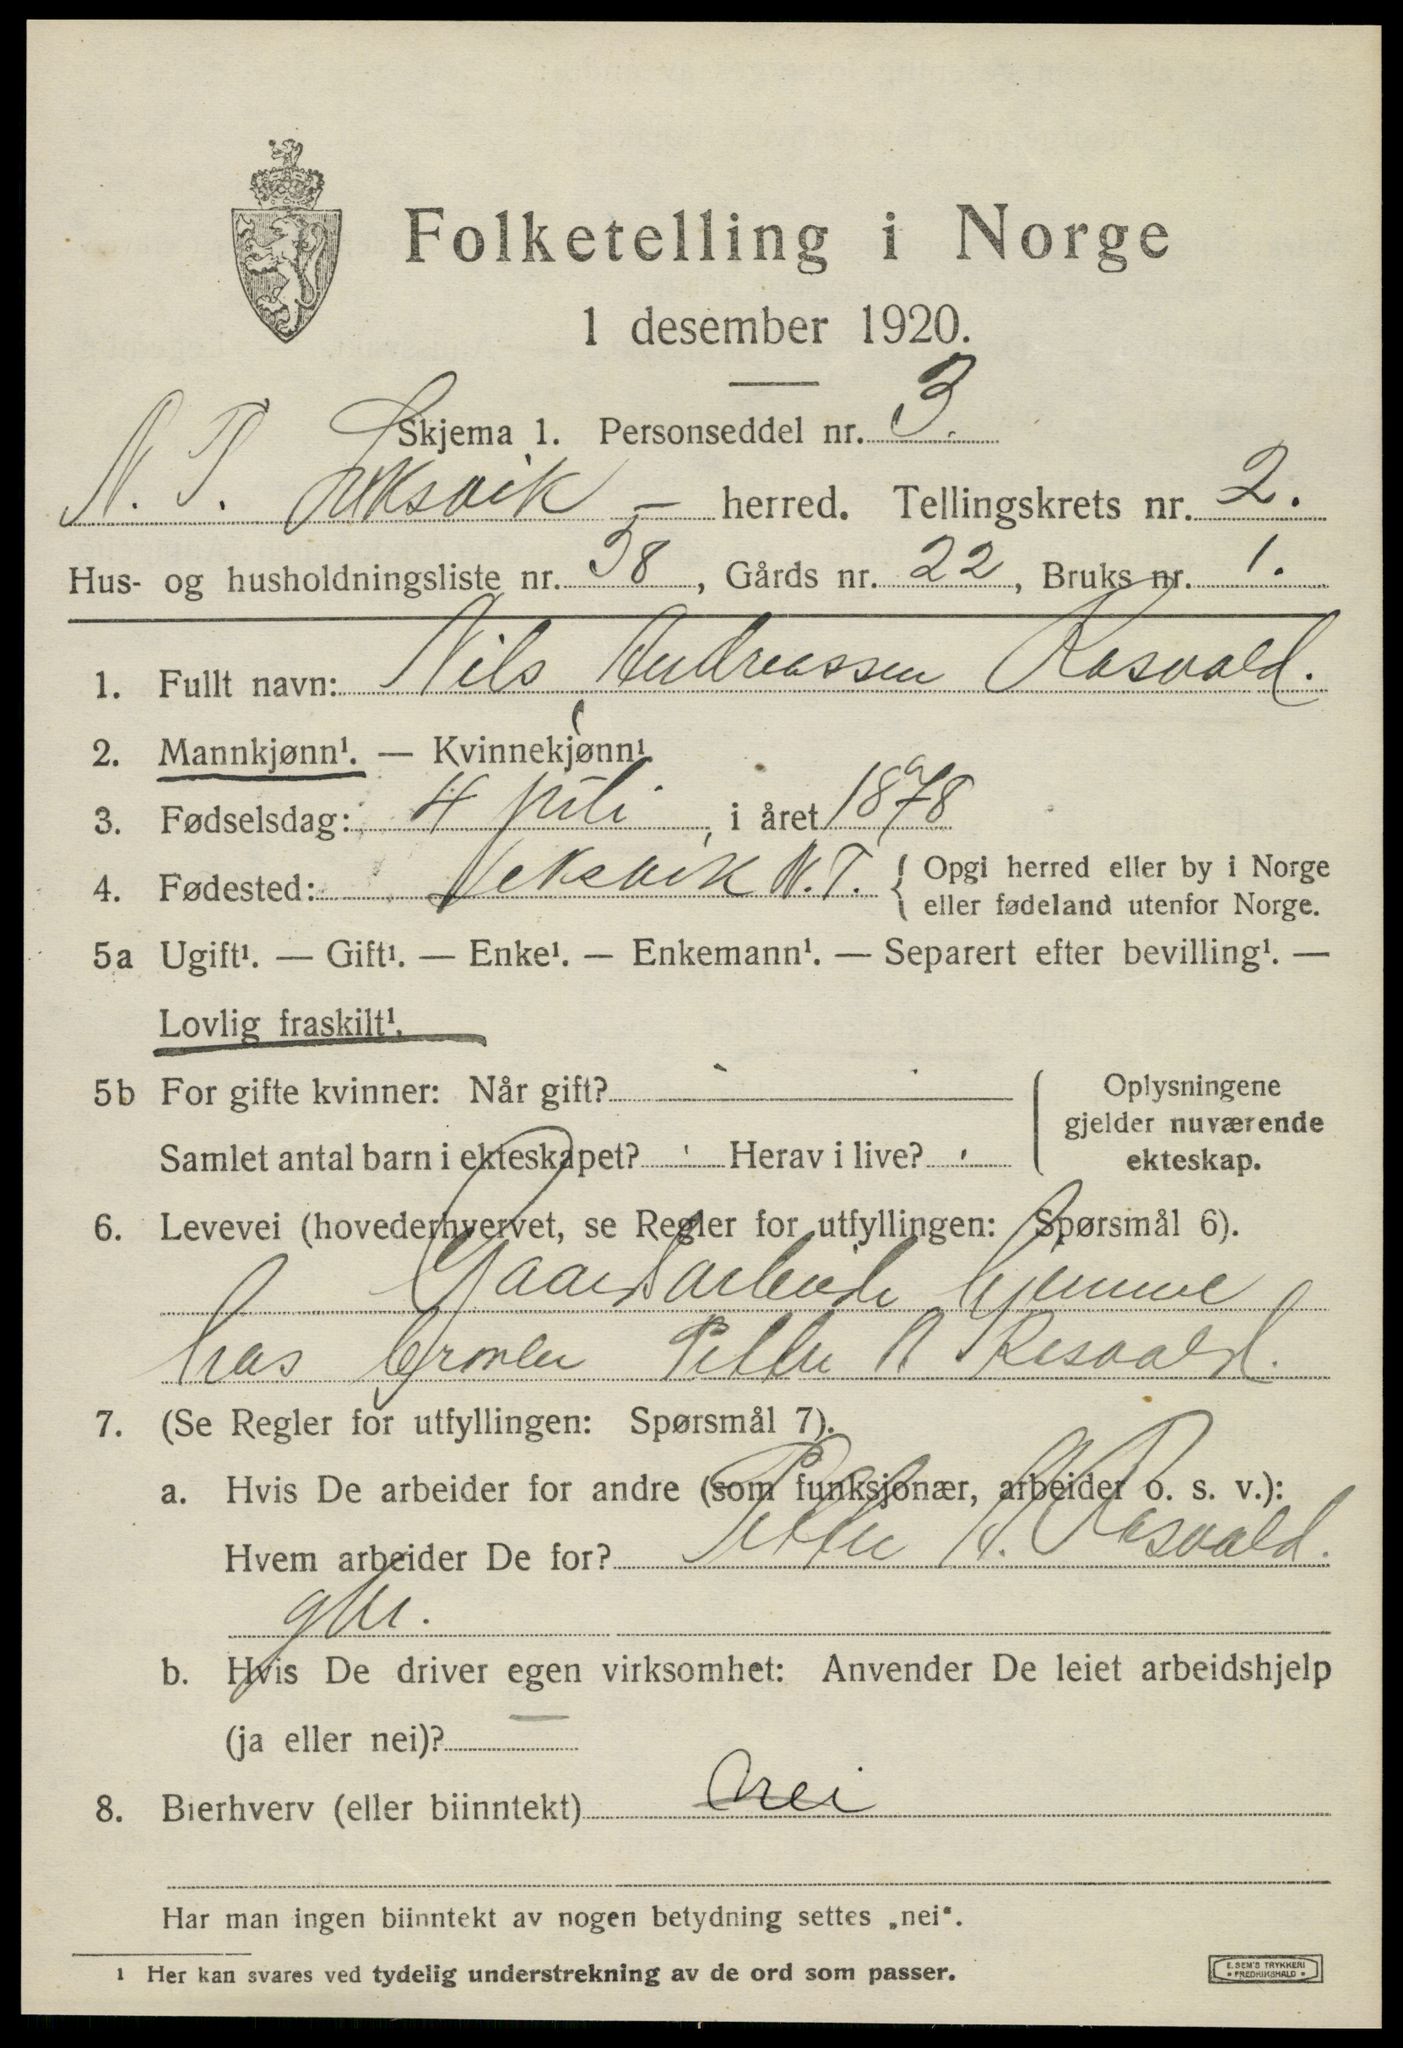 Folketelling i Norge
1 desember 1920.
Skjema 1. Personseddel nr. 3.
N. T. Leksvik – herred. Tellingskrets nr. 2.
Hus- og husholdningsliste nr. 38, Gårds nr. 22, Bruks nr. 1.
1. Fullt navn: Nils Andreassen Rasvald.
2. Mannkjønn¹. — Kvinnekjønn¹
3. Fødselsdag: 4 juli, i året 1878
4. Fødested: Leksvik N.T. { Opgi herred eller by i Norge
eller fødeland utenfor Norge.
5a Ugift¹. — Gift¹. — Enke¹. — Enkemann¹. — Separert efter bevilling¹. —
Lovlig fraskilt¹.
5b For gifte kvinner: Når gift?
Samlet antal barn i ekteskapet? Herav i live?
Oplysningene
gjelder nuværende
ekteskap.
6. Levevei (hovederhvervet, se Regler for utfyllingen: Spørsmål 6).
Gaardsarbeide hjemme
hos Petter A Rasvald.
7. (Se Regler for utfyllingen: Spørsmål 7).
a. Hvis De arbeider for andre (som funksjonær, arbeider o. s. v.):
Hvem arbeider De for? Petter A. Rasvald.
gbr.
b. Hvis De driver egen virksomhet: Anvender De leiet arbeidshjelp
(ja eller nei)? —
8. Bierhverv (eller biinntekt) nei
Har man ingen biinntekt av nogen betydning settes „nei".
1 Her kan svares ved tydelig understrekning av de ord som passer.
E. SEM'S TRYKKERI
• FREDRIKSHALD •